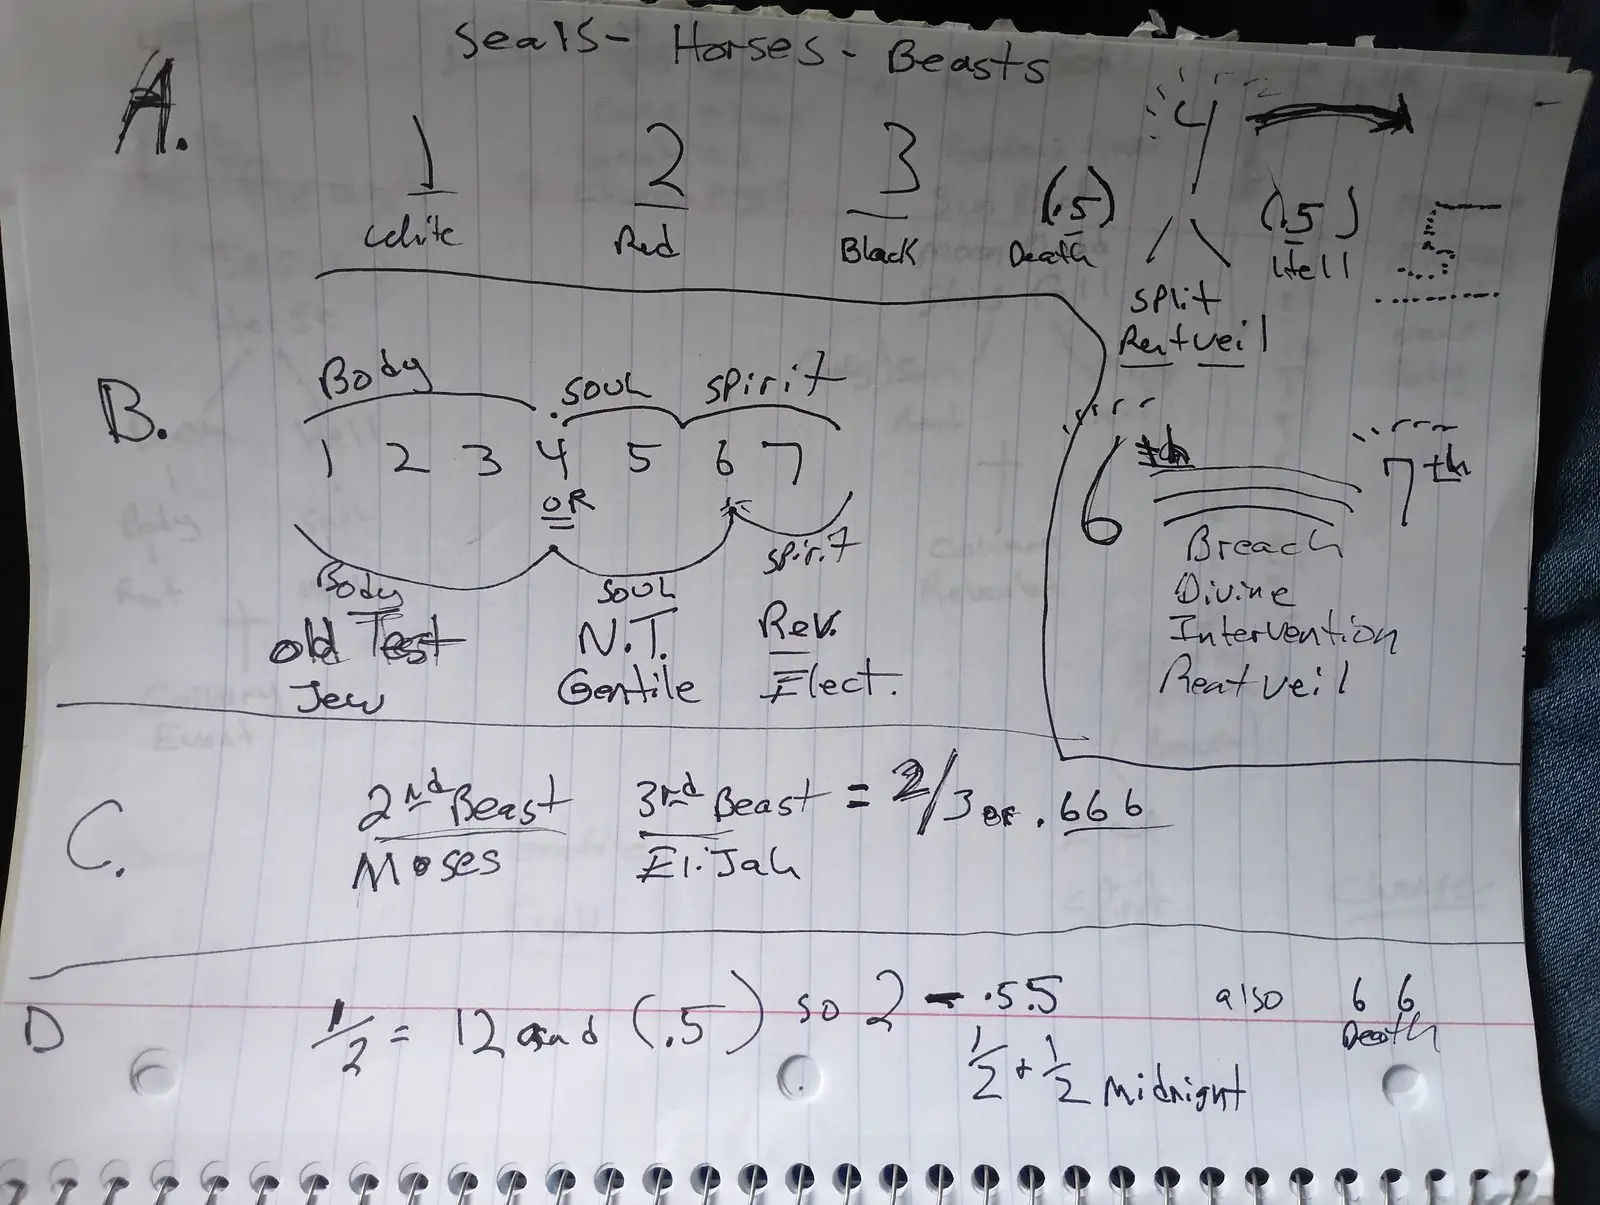 Seals - Horses - Beasts
A.
1 2 3 4
White Red Black
(.5) (.5) 5
Death Hell
Split
Rentveil
B.
Body Soul Spirit
1 2 3 4 5 6 7
OR
Body Soul Spirit
Old Test N.T. Rev.
Jew Gentile Elect.
6th 7th
Breach
Divine
Intervention
Rentveil
C.
2nd Beast 3rd Beast = 2/3 or .666
Moses Elijah
D
1/2 = 12 and (.5) so 2 - .5.5 also 6 6
1/2 + 1/2 Midnight Death